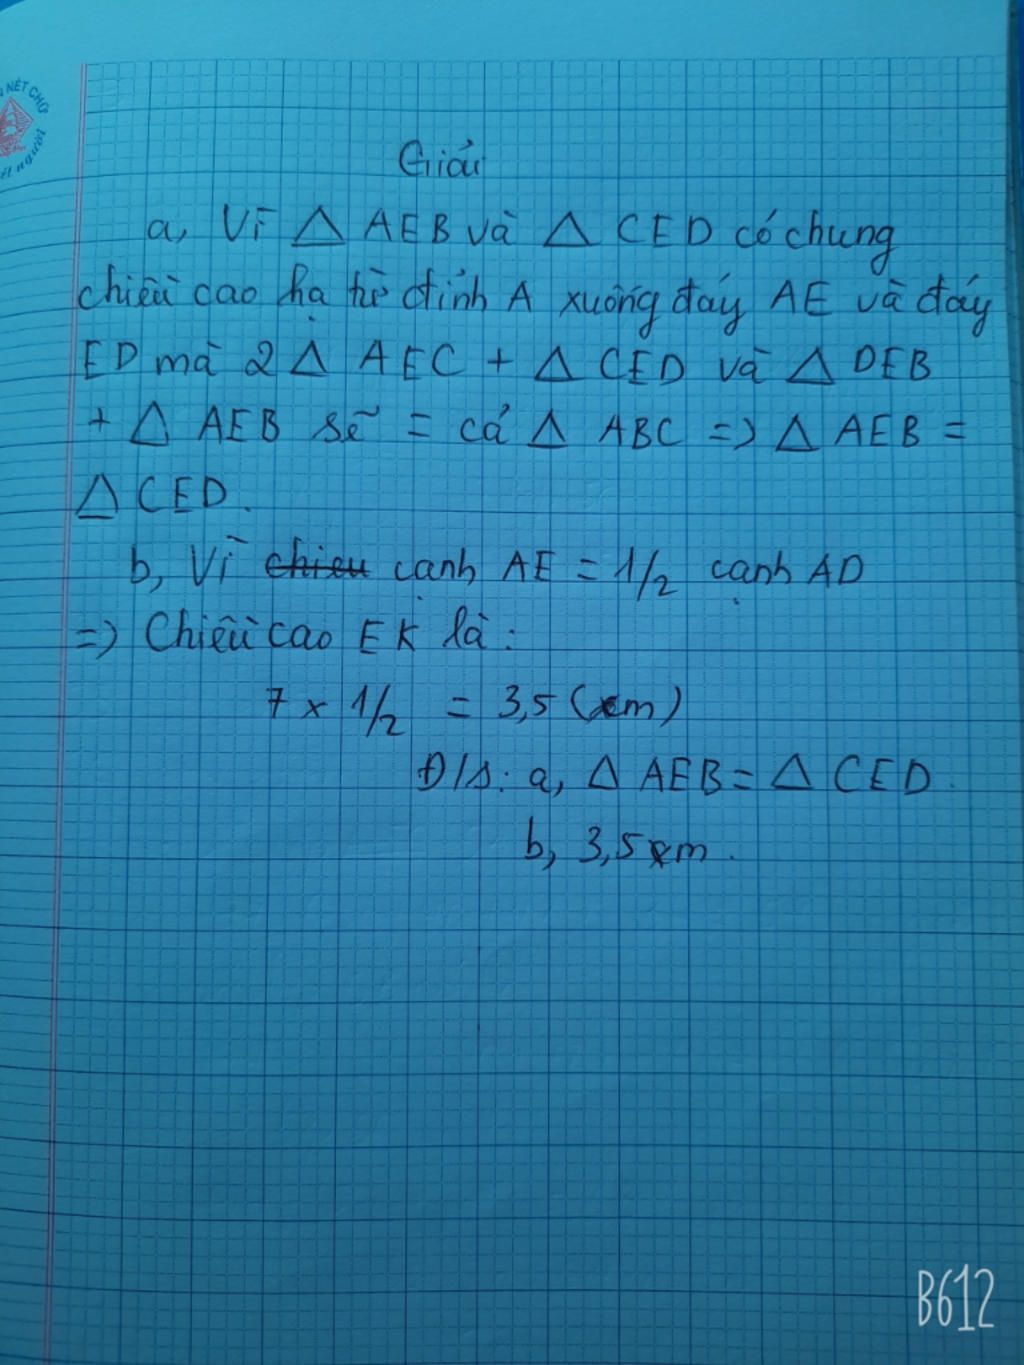 NÉT CHỮ
nết người
Giải
a, Vì △ AEB và △ CED có chung
chiều cao hạ từ đỉnh A xuống đáy AE và đáy
ED mà 2 △ AEC + △ CED và △ DEB
+ △ AEB sẽ = cả △ ABC => △ AEB =
△ CED.
b, Vì chieu cạnh AE = 1/2 cạnh AD
=> Chiều cao EK là:
7 x 1/2 = 3,5 (cm)
Đ/S: a, △ AEB = △ CED.
b, 3,5 cm.
B612